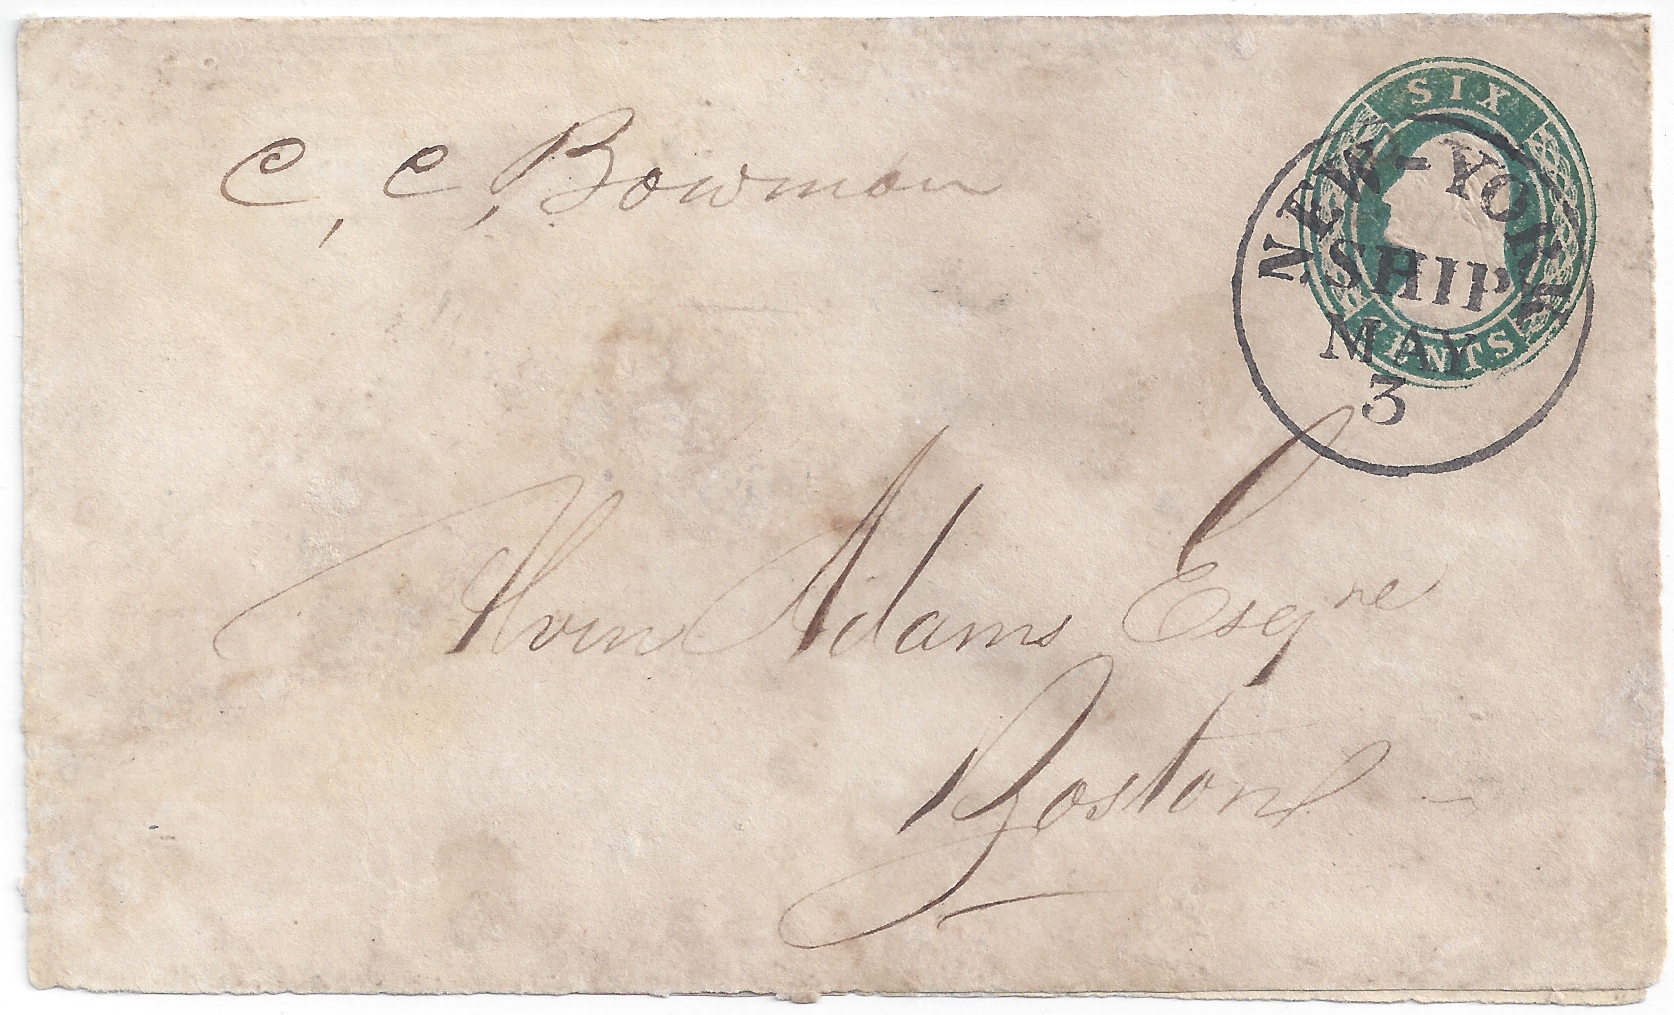 SIX
CENTS
NEW-YORK
SHIP
MAY
3
C, C, Bowman
Alvin Adams Esqre
Boston